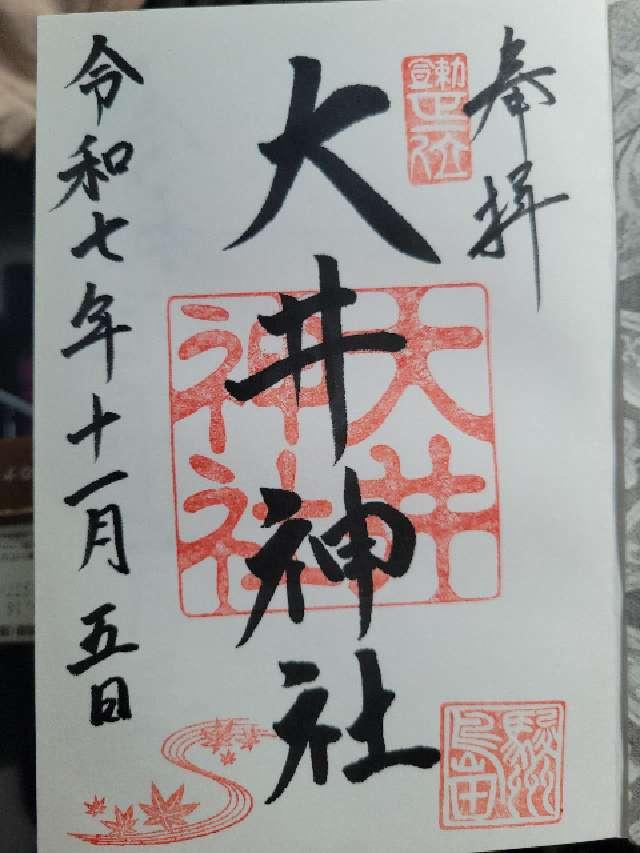 奉拝
勅宣
正一位
大井神社
大井
神社
駿州
島田
令和七年十一月五日